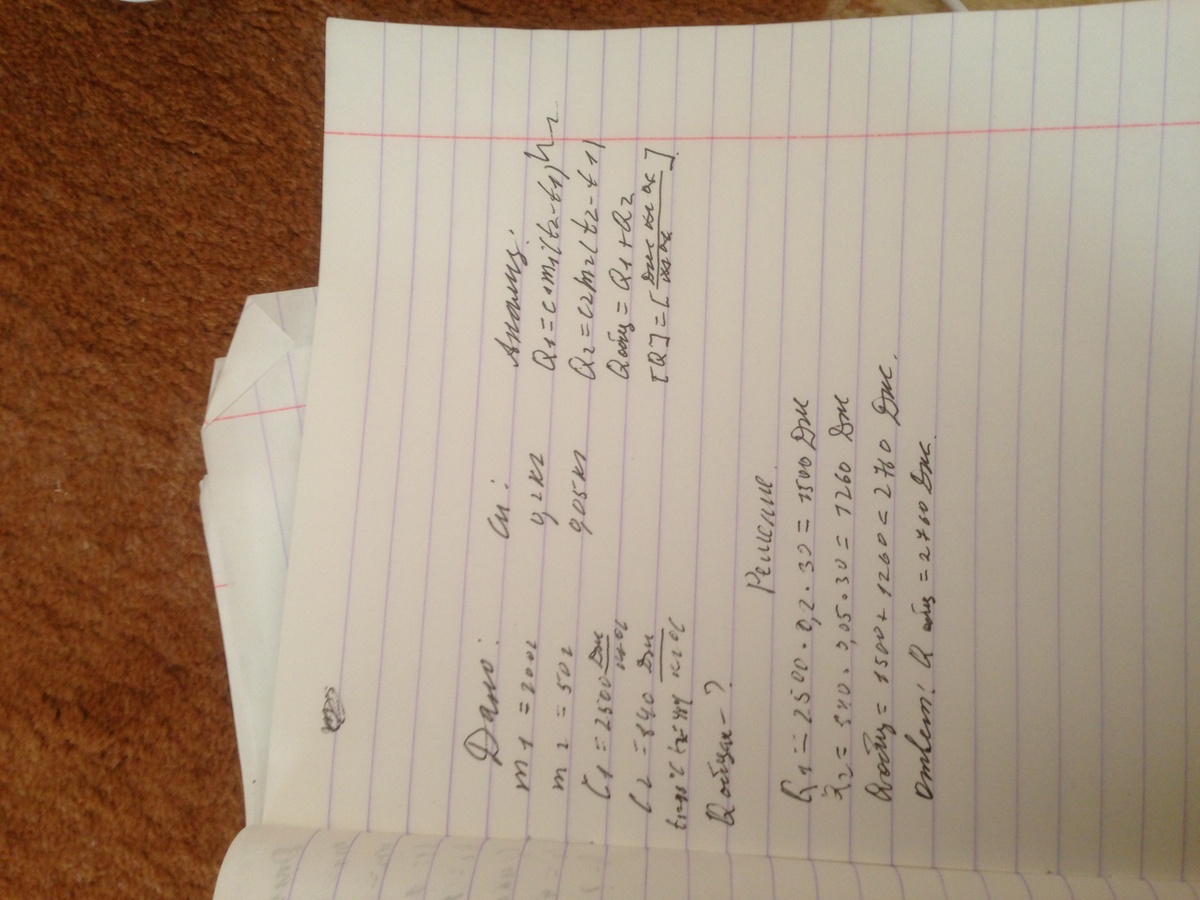 Дано:
m1 = 200г
m2 = 50г
C1 = 2500 Дж/кг°С
C2 = 840 Дж/кг°С
Qобщая - ?
Си:
0,2кг
0,05кг
Анализ:
Q1 = c1m1(t2-t1)
Q2 = c2m2(t2-t1)
Qобщ = Q1+Q2
[Q] = [Дж кг °С/кг °С]
Решение.
Q1 = 2500 · 0,2 · 30 = 1500 Дж
Q2 = 840 · 0,05 · 30 = 1260 Дж
Qобщ = 1500 + 1260 = 2760 Дж.
Ответ: Q общ = 2760 Дж.